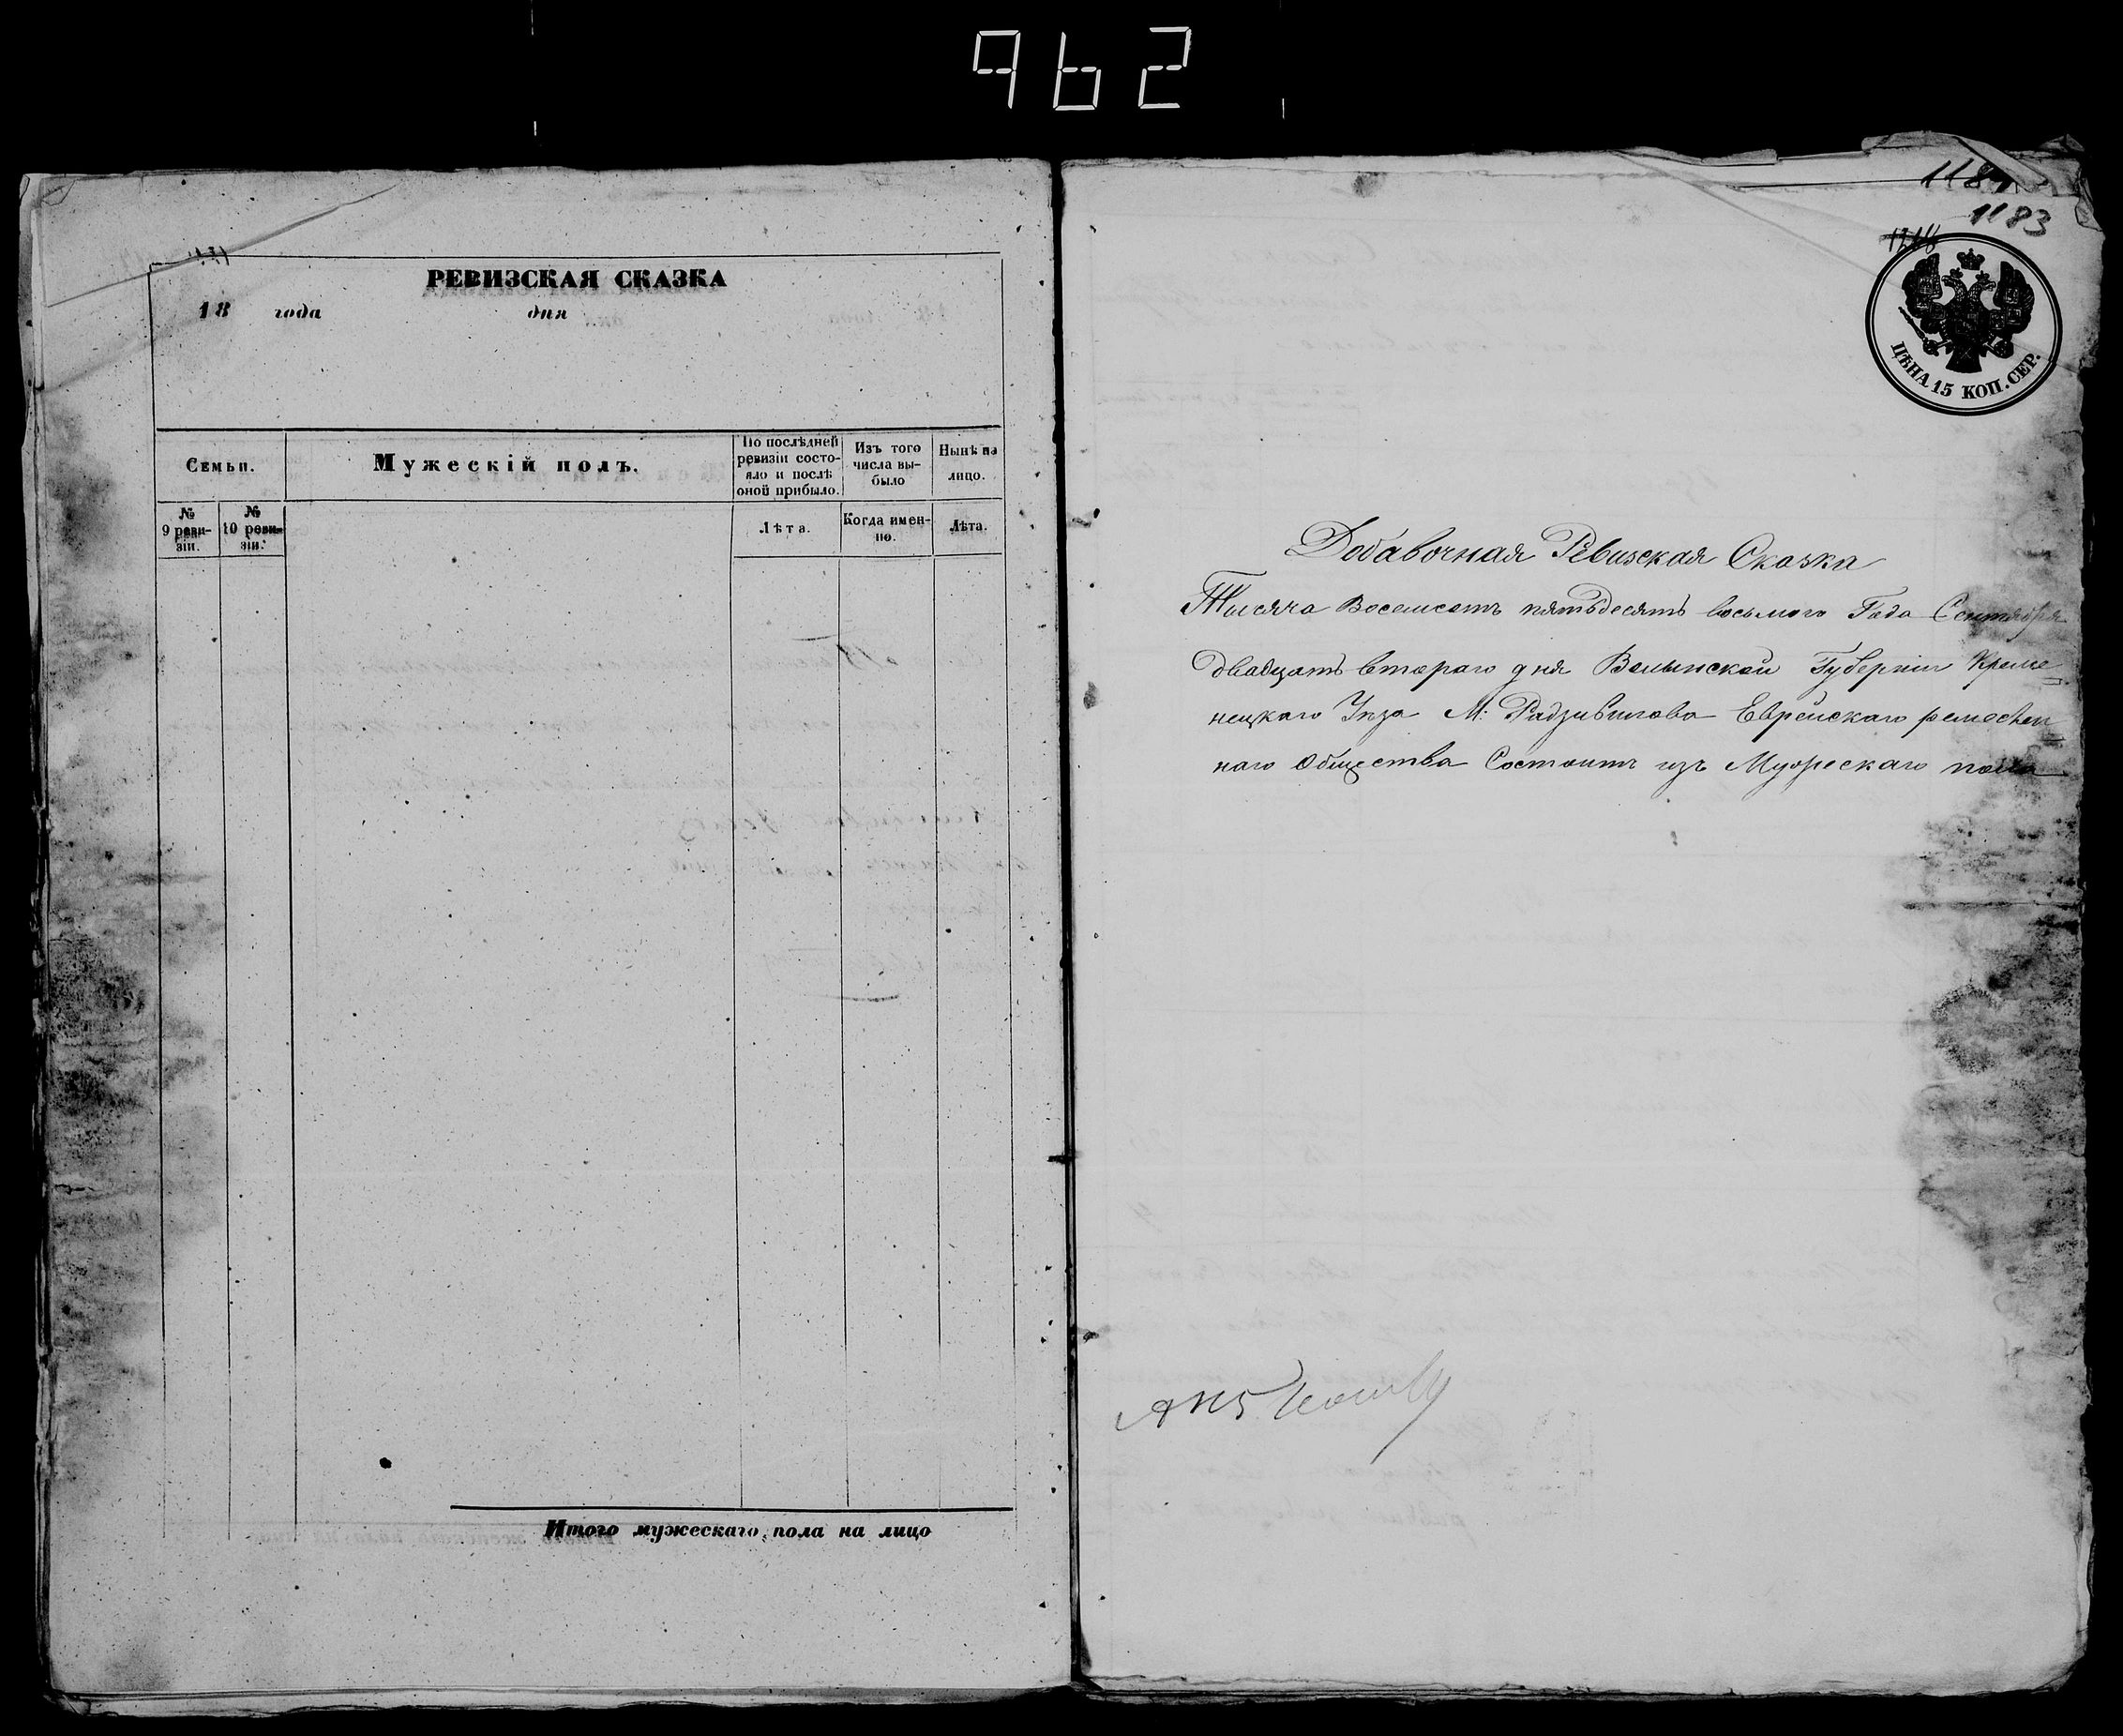 962
РЕВИЗСКАЯ СКАЗКА
18 года дня
Семьи.
Мужескій полъ.
По послѣдней ревизіи состо-
яло и послѣ
оной прибыло.
Изъ того
числа вы-
было
Нынѣ на
лицо.
№
9 реви-
зіи.
№
10 реви-
зіи.
Лѣта.
Когда имен-
но.
Лѣта.
Итого мужескаго пола на лицо
1183
ЦѢНА 15 КОП. СЕР.
Добавочная Ревизская Сказка
Тысяча Восемсотъ пятьдесятъ восьмого Года Сентября
двадцать втораго дня Волынской Губерніи Креме=
нецкаго Уѣзда М: Радзивилова Еврейскаго ремеслен=
наго Общества Состоитъ изъ Мужескаго пола